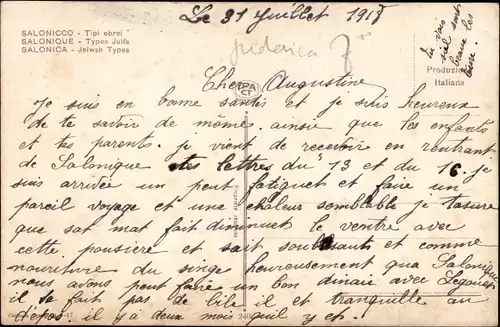 SALONICCO - Tipi ebrei
SALONIQUE - Types Juifs
SALONICA - Jeiwsh Types
Le 31 Juillet 1917
tu vois
sont
beaux les
Produzione
Italiana
Cher Augustine
Je suis en bonne santés et je suis heureux
de te savoir de même. ainsie que les enfants
et tes parents. je vient de recevoir en rentrant
de Salonique tes lettres du 13 et du 16. je
suis arrivée un peut fatiguet et faire un
pareil voyage et une chaleur semblable je t'asure
que sat mat fait diminuet le ventre avec
cette pousiere et sait soulesants et comme
nouriture du singe heureusement qua Salonique
nous avons peut faire un bon dinair avec Legouet
il la fait pas de bile il et tranquille au
depos. il y a deux mois quil y et.